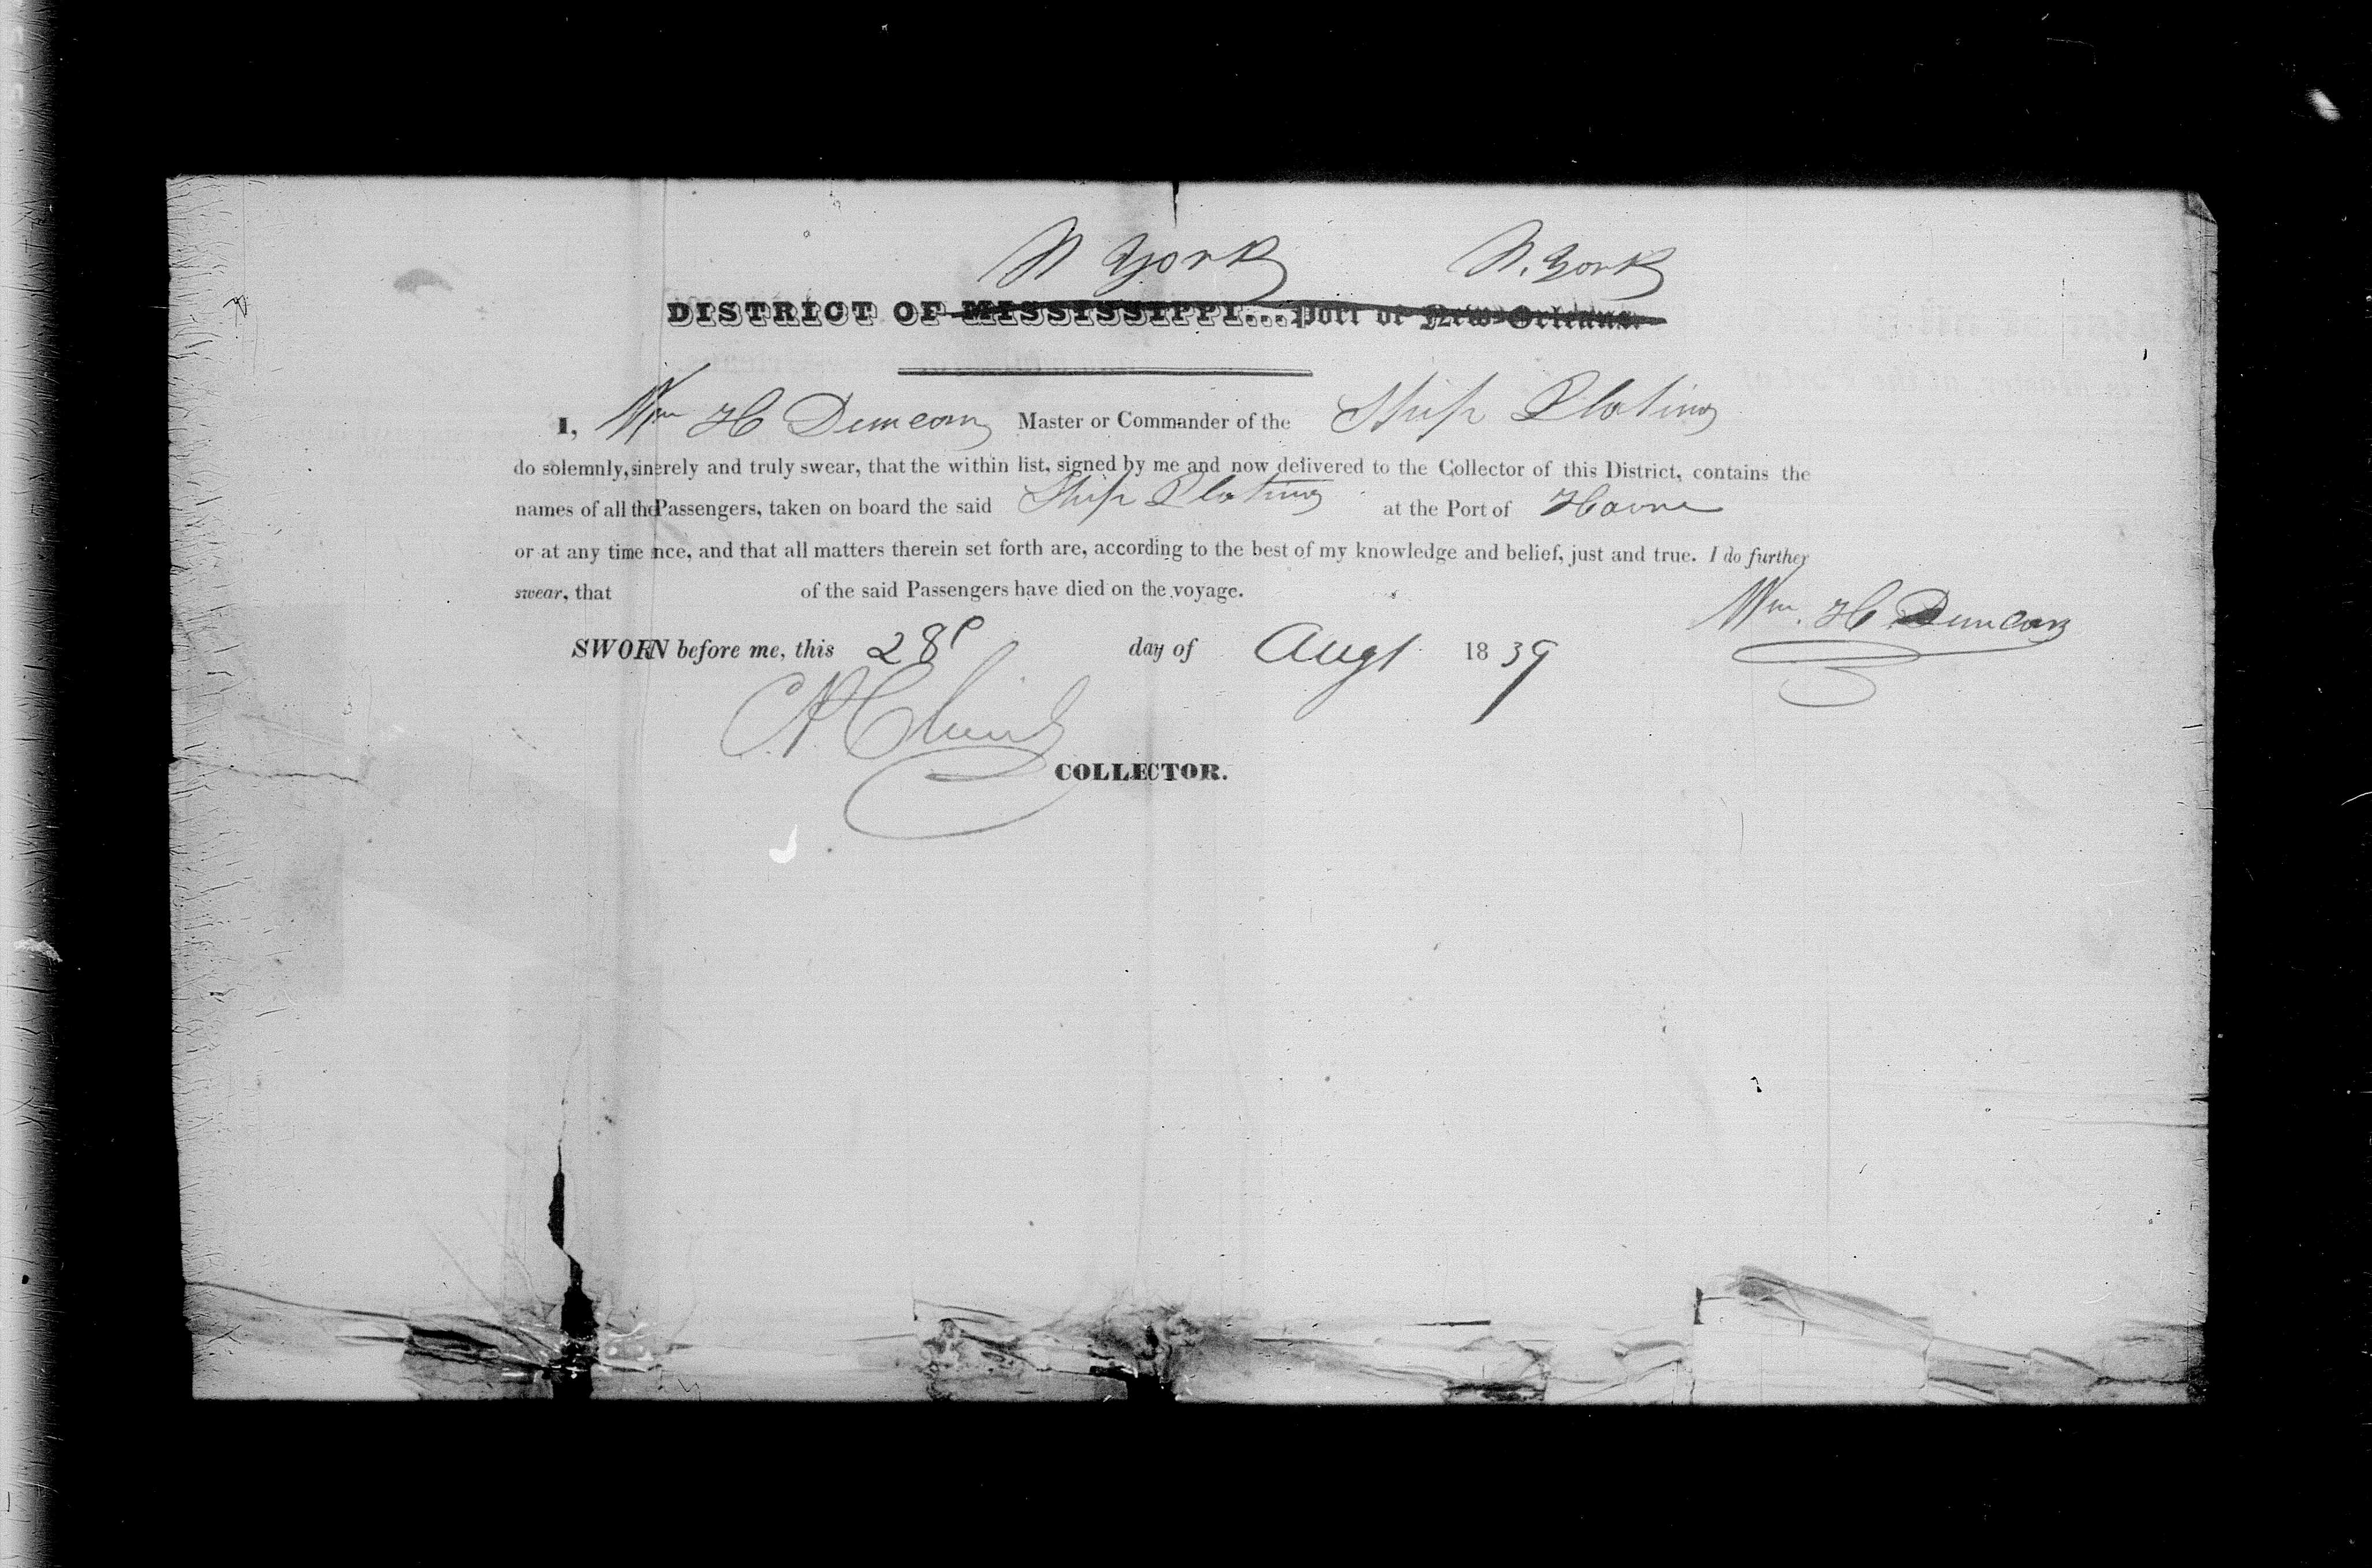 N York N. York
DISTRICT OF MISSISSIPPI... Port of New-Orleans.
I, Wm H Duncan Master or Commander of the Ship Platina
do solemnly, sinerely and truly swear, that the within list, signed by me and now delivered to the Collector of this District, contains the
names of all the Passengers, taken on board the said Ship Platina at the Port of Havre
or at any time nce, and that all matters therein set forth are, according to the best of my knowledge and belief, just and true. I do further
swear, that of the said Passengers have died on the voyage.
Wm. H Duncan
SWORN before me, this 28 day of Augt 1839
COLLECTOR.